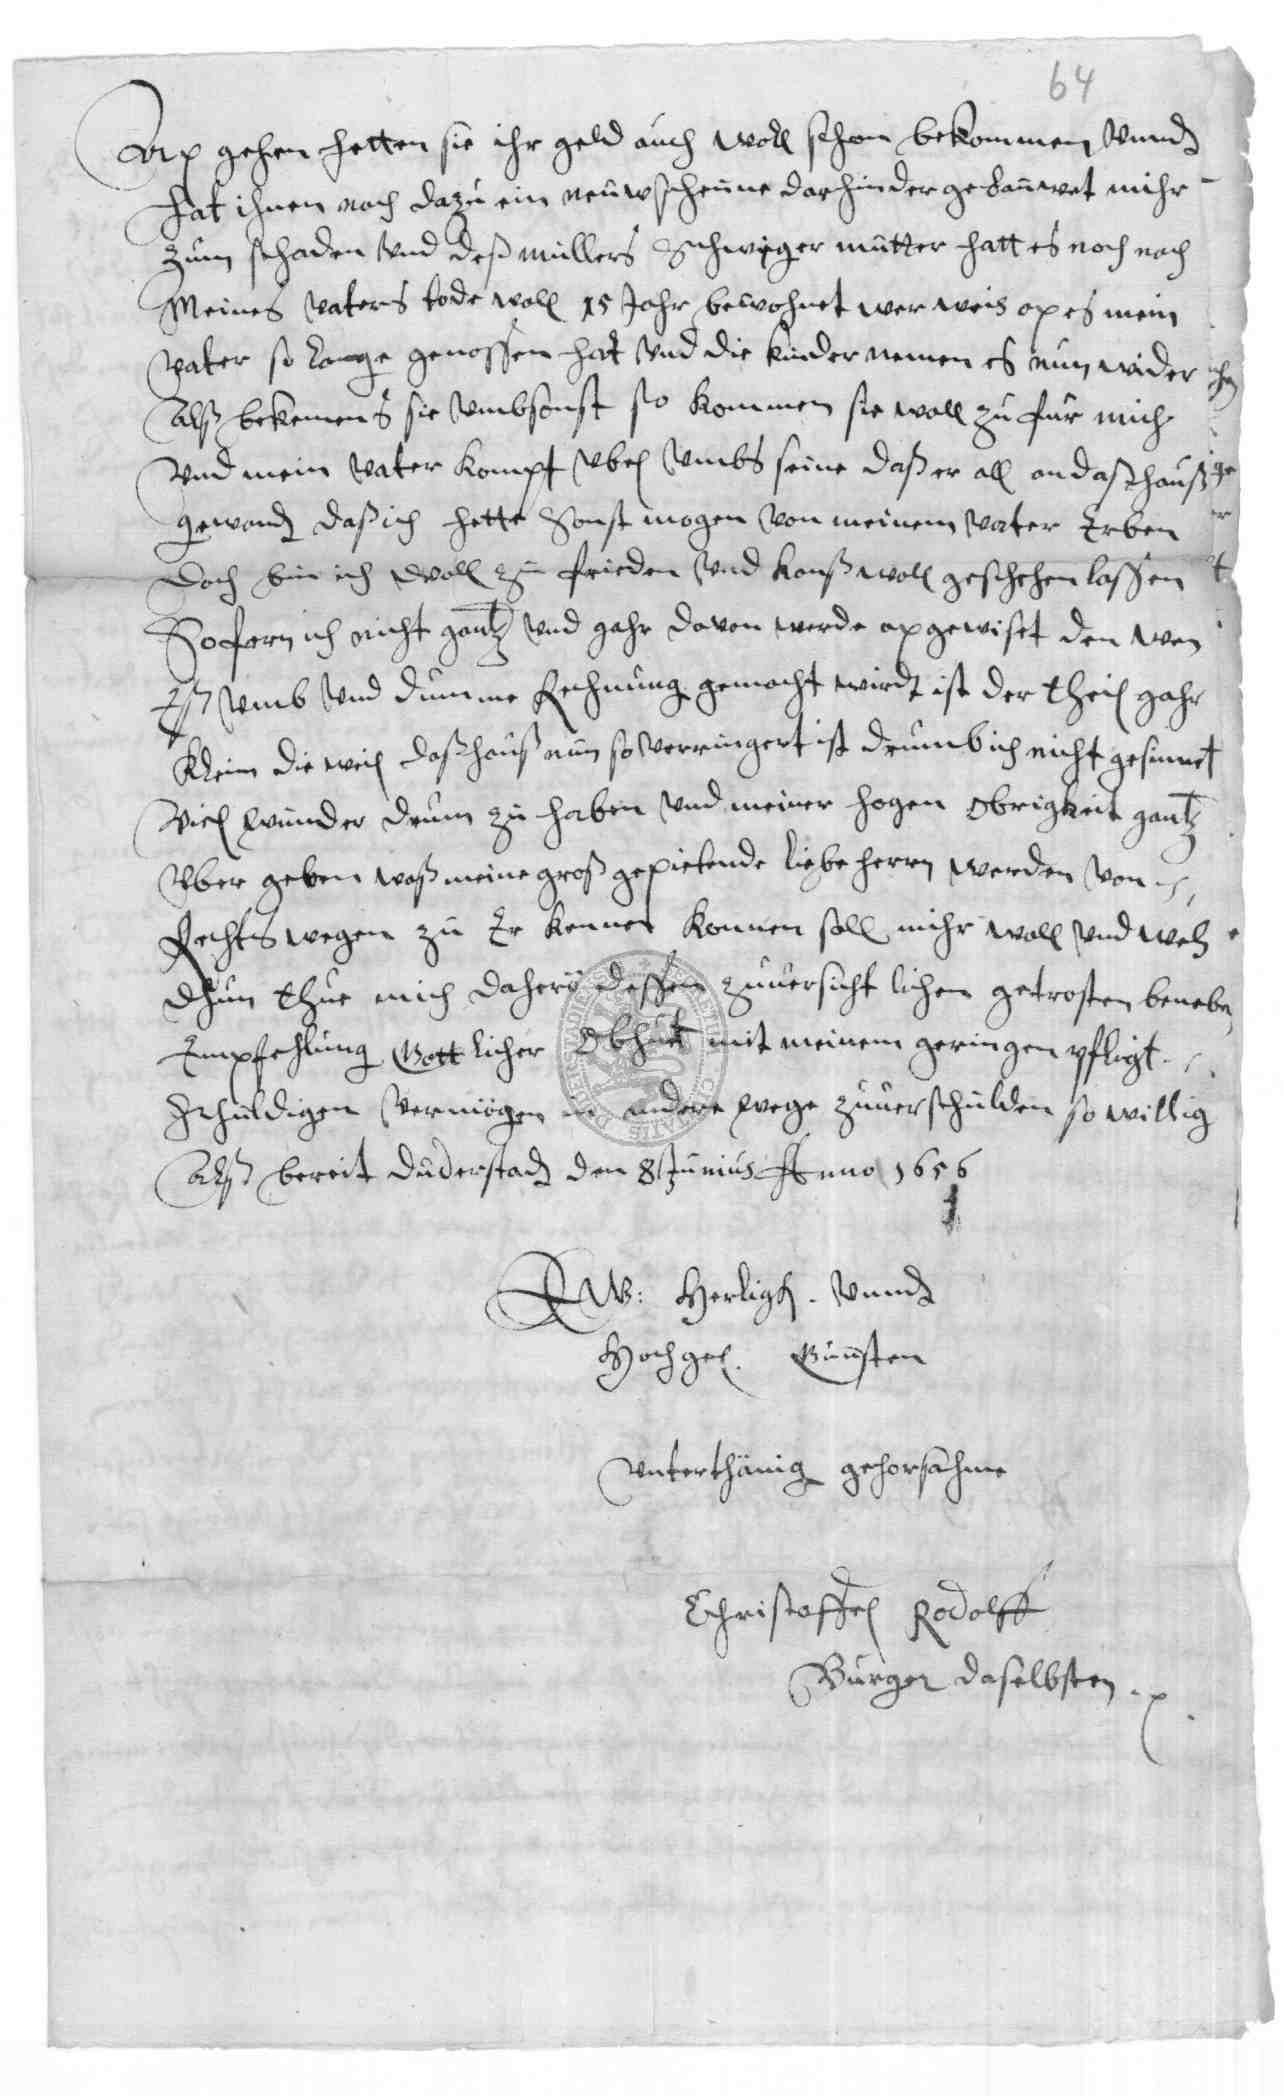 64
Ap gehen hetten sie ihr geld auch woll schon bekommen Vnnd
hat ihnen noch dazu ein neuw scheune darhinder gebauwet mihr
zum schaden Vnd deß müllers Schwiger mutter hatt es noch nach
Meines Vaters tode woll 15 Jahr bewohnet wer weis op es mein
Vater so lange genossen hat Vnd die kinder nemen es nun wider
Alß bekemens sie Vmbsonst so kommen sie woll zu fur mich
Vnd mein Vater kompt Vbel Vmbs seine daß er all an daß hauß
gewand daß ich hette Sonst mogen von meinem Vater Erben
Doch bin ich woll zu frieden Vnd kanß woll geschehen lassen
So fern ich nicht gantz Vnd gahr davon werde apgewiset den wen
Eß Vmb Vnd dumme Rechnung gemacht wirdt ist der theil gahr
Klein die weil daß hauß nun so verringert ist drumb ich nicht gesinnet
Viel wunder drum zu haben Vnd meiner hogen Obrigkeit gantz
Vber geben waß meine groß gepietende liebe herrn werden von
Rechts wegen zu Er kennen konnen soll mihr woll Vnd weh
dhun thue mich dahero dessen zuuersicht lichen getrosten beneben
Empfehlung Gott licher Obhut mit meinem geringen pfligt
schuldigen Vermögen in andere wege zuuerschulden so willig
Alß bereit Duderstad den 8 Junius Anno 1656
EW: Herligk. Vnnd
Hochgel. Gunsten
Vnterthänig gehorsahme
Christoffel Rodolff
Burger daselbsten